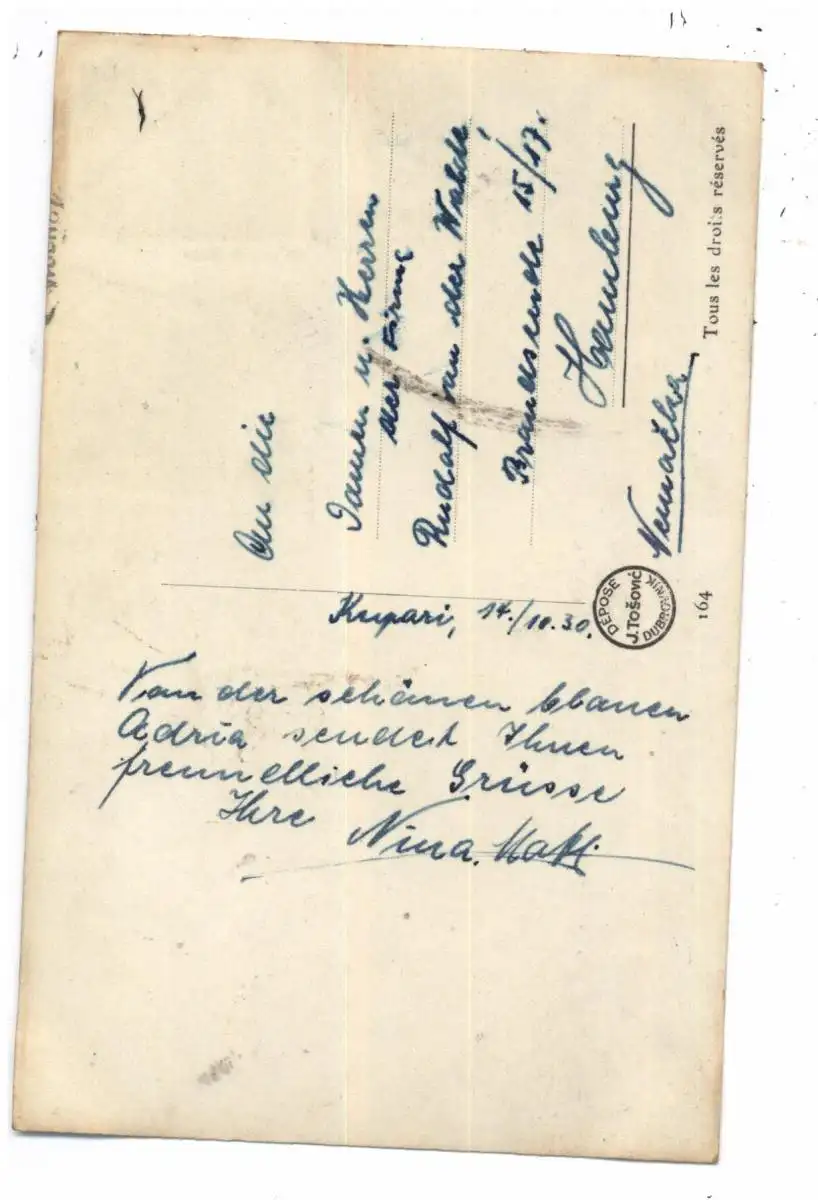 An die
Damen u. Herren
der Firma
Rudolf von der Walde,
Brandsende 15/17.
Hamburg
Nemačka
Tous les droits réservés
164
DEPOSE
J. Tošović
DUBROVNIK
Kupari, 14./10.30.
Von der schönen blauen
Adria sendet Ihnen
freundliche Grüsse
Ihre
Nina